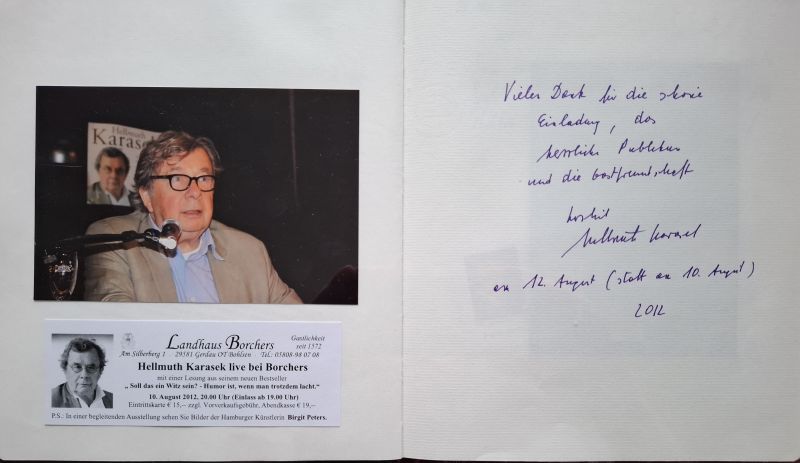 Hellmuth
Karasek
Landhaus Borchers
Gastlichkeit
seit 1572
Am Silberberg 1 · 29581 Gerdau OT Bohlsen · Tel.: 05808-98 07 08
Hellmuth Karasek live bei Borchers
mit einer Lesung aus seinem neuen Bestseller
„ Soll das ein Witz sein? - Humor ist, wenn man trotzdem lacht.“
10. August 2012, 20.00 Uhr (Einlass ab 19.00 Uhr)
Eintrittskarte € 15,– zzgl. Vorverkaufsgebühr, Abendkasse € 19,–
P.S.: In einer begleitenden Ausstellung sehen Sie Bilder der Hamburger Künstlerin Birgit Peters.
Vielen Dank für die schöne
Einladung, das
herrliche Publikum
und die Gastfreundschaft
herzlich
Hellmuth Karasek
am 12. August (statt am 10. August)
2012